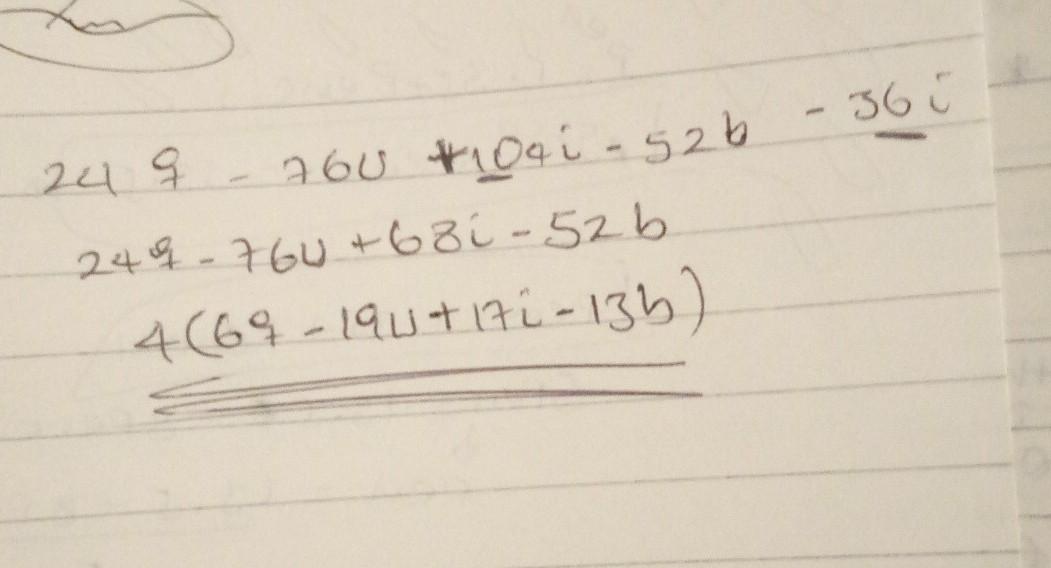 24q - 76u +104i - 52b - 36i
24q - 76u + 68i - 52b
4(6q - 19u + 17i - 13b)